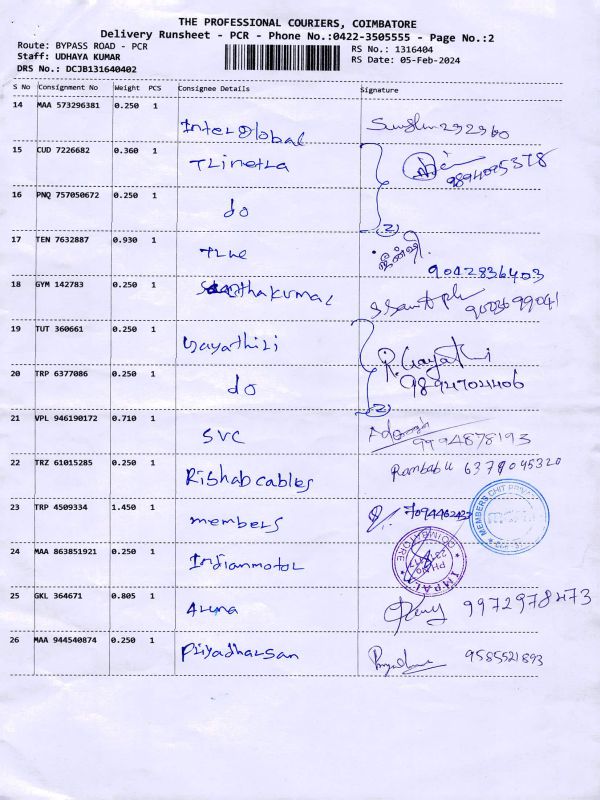 THE PROFESSIONAL COURIERS, COIMBATORE
Delivery Runsheet - PCR - Phone No.:0422-3505555 - Page No.:2
Route: BYPASS ROAD - PCR RS No.: 1316404
Staff: UDHAYA KUMAR RS Date: 05-Feb-2024
DRS No.: DCJB131640402
S No Consignment No Weight PCS Consignee Details Signature
14 MAA 573296381 0.250 1
InterGlobal
15 CUD 7226682 0.360 1
Trinetra 9894075378
16 PNQ 757050672 0.250 1
do (2)
17 TEN 7632887 0.930 1
True
9042836403
18 GYM 142783 0.250 1
Santhakumar 9003699041
19 TUT 360661 0.250 1
Gayathiri R. Gayathri
20 TRP 6377086 0.250 1
do 9894704406
(2)
21 VPL 946190172 0.710 1
SVC 9994878193
22 TRZ 61015285 0.250 1
Rishab cables Rambabu 6379095320
23 TRP 4509334 1.450 1
members 7094462437
MEMBERS CHIT PRIVATE
24 MAA 863851921 0.250 1
Indianmotor
COIMBATORE
IMPAL
25 GKL 364671 0.805 1
Aruna 9972978473
26 MAA 944540874 0.250 1
Priyadharsan 9585521893